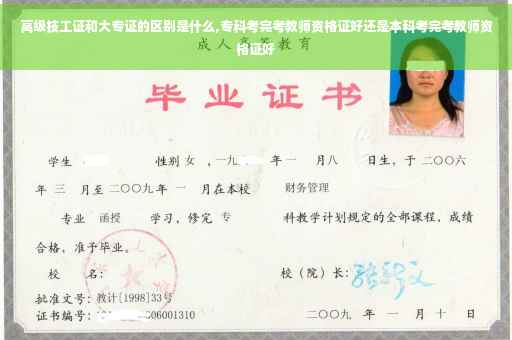 高级技工证和大专证的区别是什么,专科考完考教师资格证好还是本科考完考教师资格证好
成人高等教育
毕业证书
学生 性别 女 ,一九 年一 月八 日生，于二〇〇六
年 三 月至二〇〇九年 一 月在本校 财务管理
专业 函授 学习，修完 专 科教学计划规定的全部课程，成绩
合格，准予毕业。
校 名： 校（院）长：
批准文号：教计[1998]33号
证书编号： 06001310 二〇〇九 年 一 月 十 日